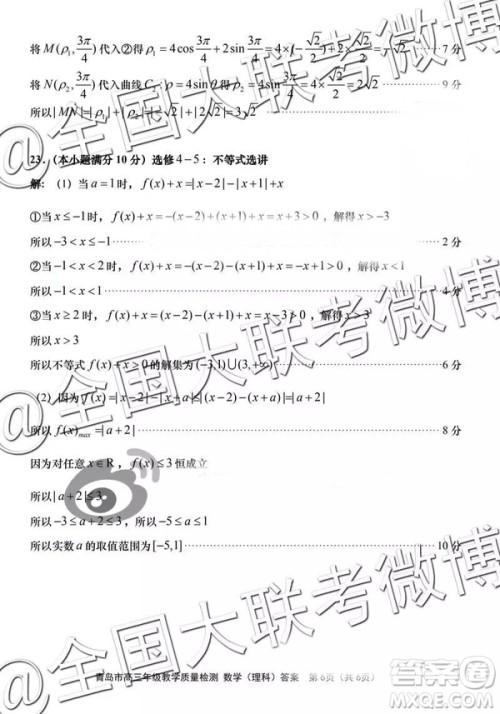 将 M(ρ₁, 3π/4) 代入②得 ρ₁ = 4cos 3π/4 + 2sin 3π/4 = 4×(-√2/2) + 2×√2/2 = -√2 ··· 7 分
将 N(ρ₂, 3π/4) 代入曲线 C₂: ρ = 4sinθ 得 ρ₂ = 4sin 3π/4 = 4×√2/2 = 2√2 ··· 9 分
所以 |MN| = |ρ₁| + |ρ₂| = |-√2| + |2√2| = 3√2
23.(本小题满分 10 分)选修 4-5:不等式选讲
解:(1)当 a=1 时, f(x)+x=|x-2|-|x+1|+x
①当 x≤-1 时, f(x)+x=-(x-2)+(x+1)+x=x+3>0,解得 x>-3
所以 -3<x≤-1 ··· 2 分
②当 -1<x<2 时, f(x)+x=-(x-2)-(x+1)+x=-x+1>0,解得 x<1
所以 -1<x<1 ··· 4 分
③当 x≥2 时, f(x)+x=(x-2)-(x+1)+x=x-3>0,解得 x>3
所以 x>3
所以不等式 f(x)+x>0 的解集为 (-3,1)∪(3,+∞) ··· 6 分
(2)因为 f(x)=|x-2|-|x+a|≤|(x-2)-(x+a)|=|a+2|
所以 f(x)max=|a+2| ··· 8 分
因为对任意 x∈R, f(x)≤3 恒成立
所以 |a+2|≤3
所以 -3≤a+2≤3,所以 -5≤a≤1
所以实数 a 的取值范围为 [-5,1] ··· 10 分
青岛市高三年级教学质量检测 数学(理科)答案 第 6页(共 6页)
@全国大联考微博
@全国大联考微博
@全国大联考微博
答案圈